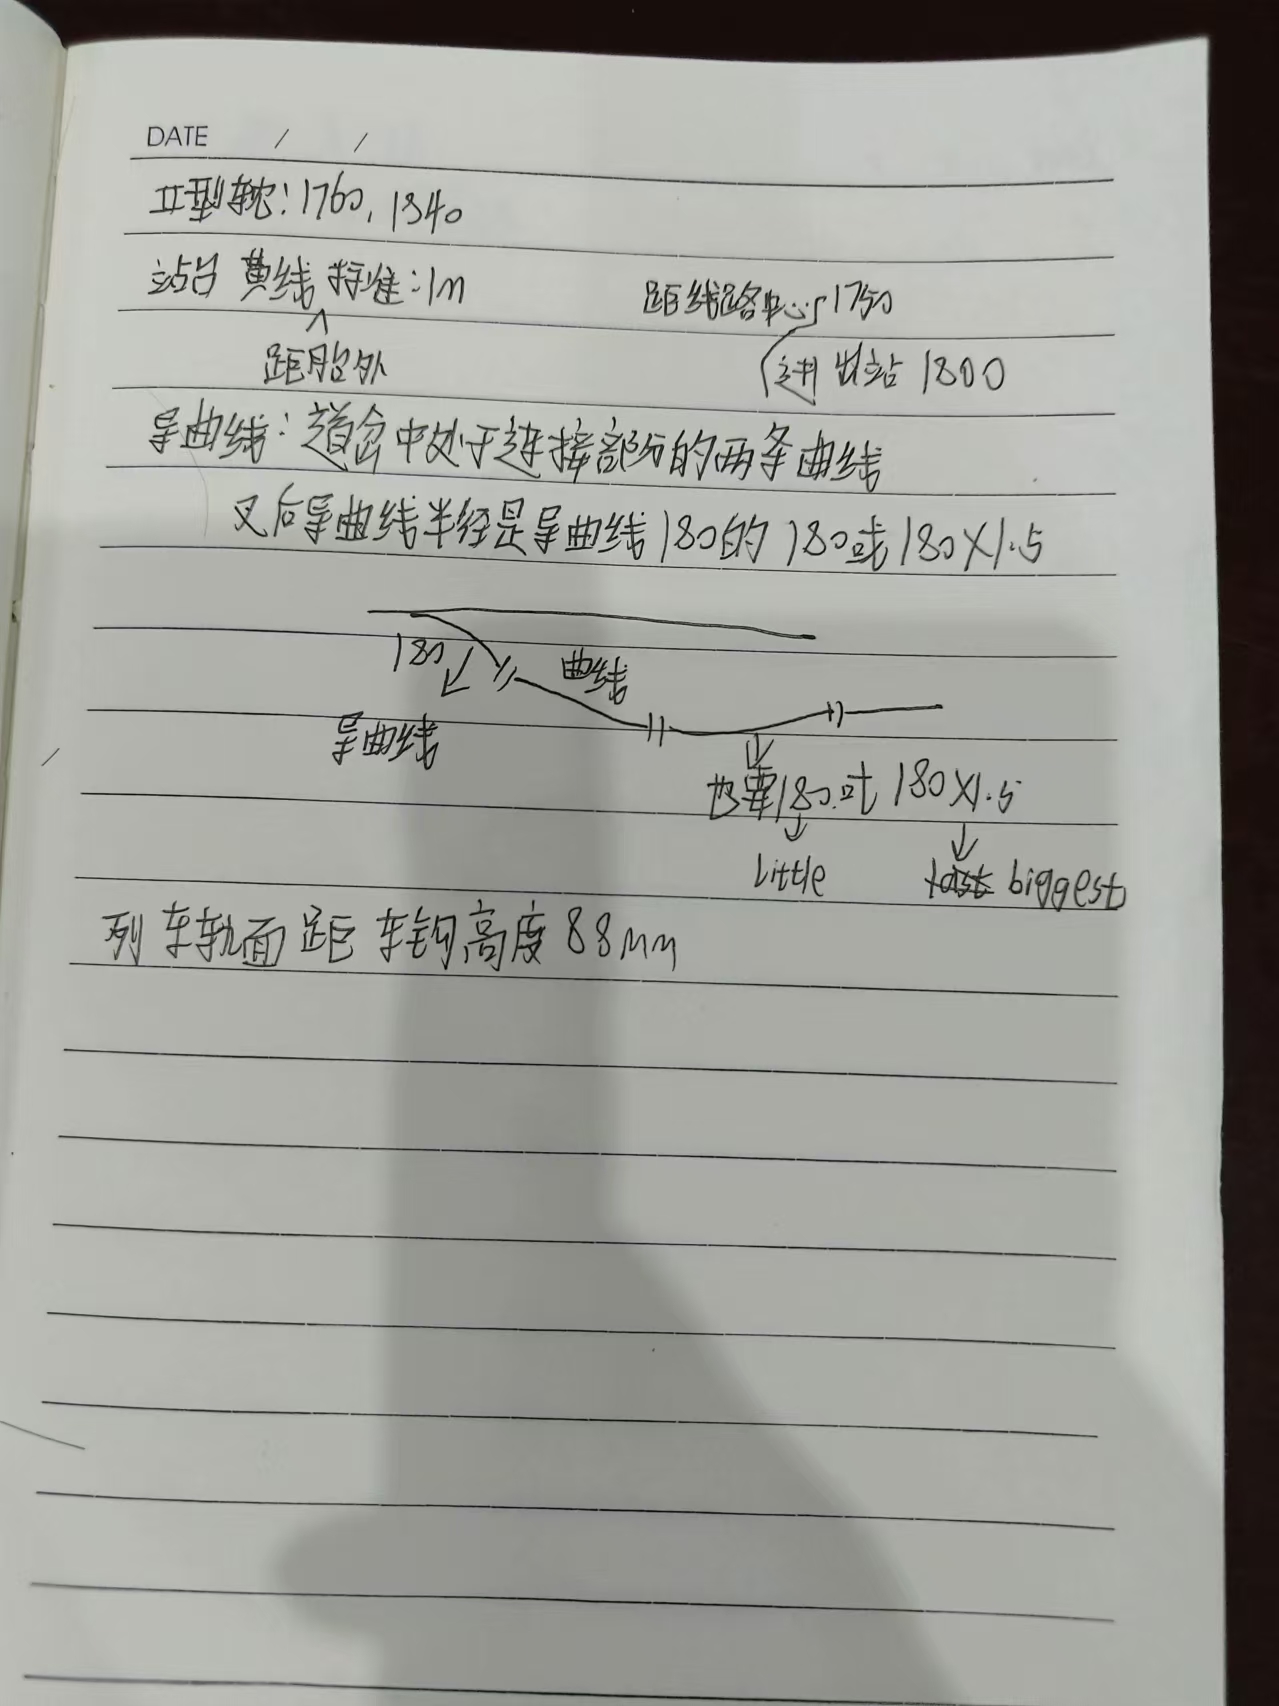 DATE / /
II型轨枕:1760,1840
站台 黄线 标准:1m 距线路中心 1750
距胎外 进出站 1800
导曲线:道岔中处于连接部份的两条曲线
叉后导曲线半径是导曲线180的 180或180×1.5
180 曲线
导曲线
也要180或 180×1.5
little biggest
列车轨面 距 车钩高度 88mm